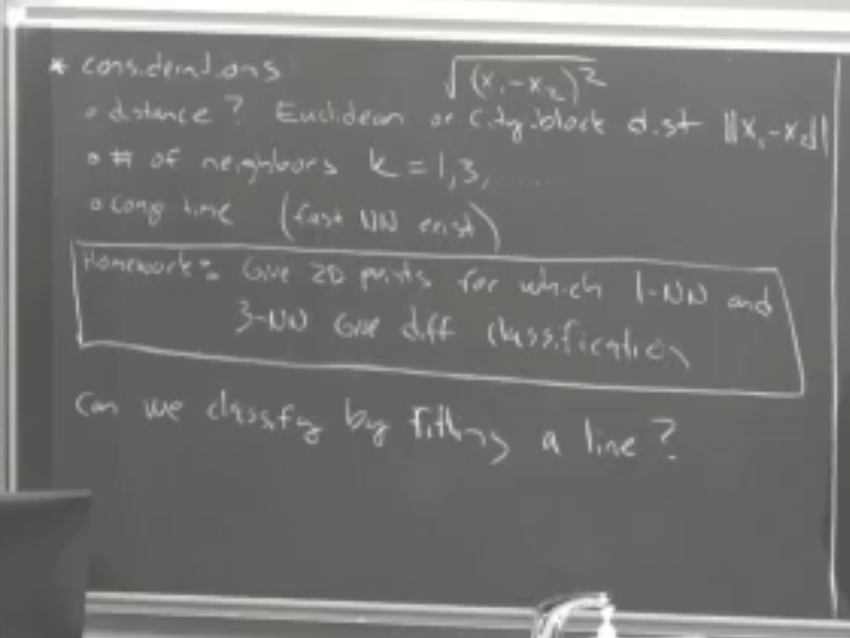 * considerations:
√(x₁-x₂)²
• distance? Euclidean or city-block dist ||x₁-x₂||
• # of neighbors k = 1,3, ....
• comp time (fast NN exist)
Homework: Give 2D points for which 1-NN and
3-NN Give diff classification
Can we classify by fitting a line?